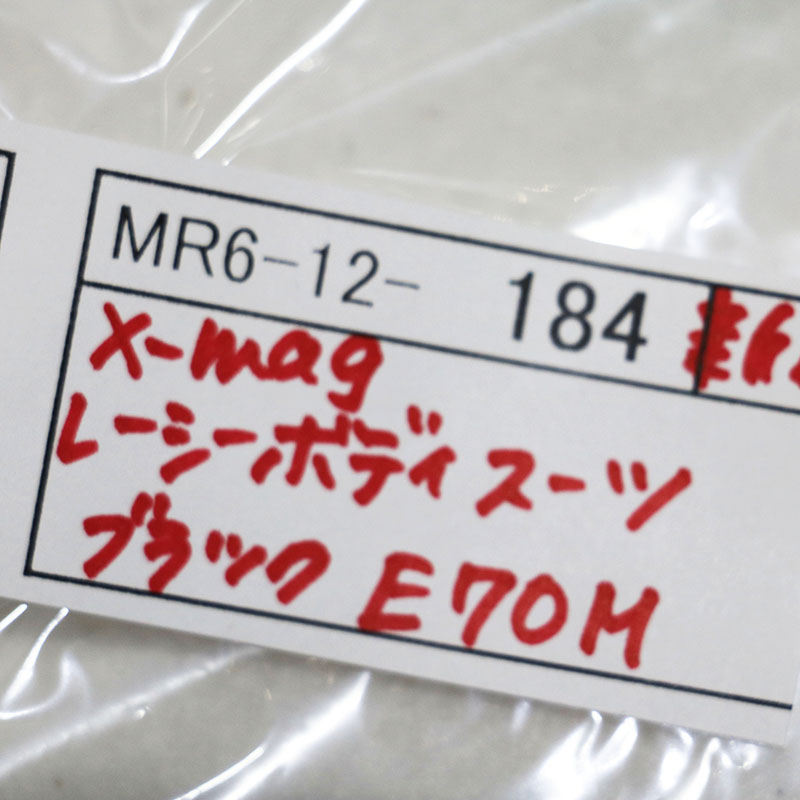 MR6-12- 184
X-mag
レーシーボディスーツ
ブラック E70M